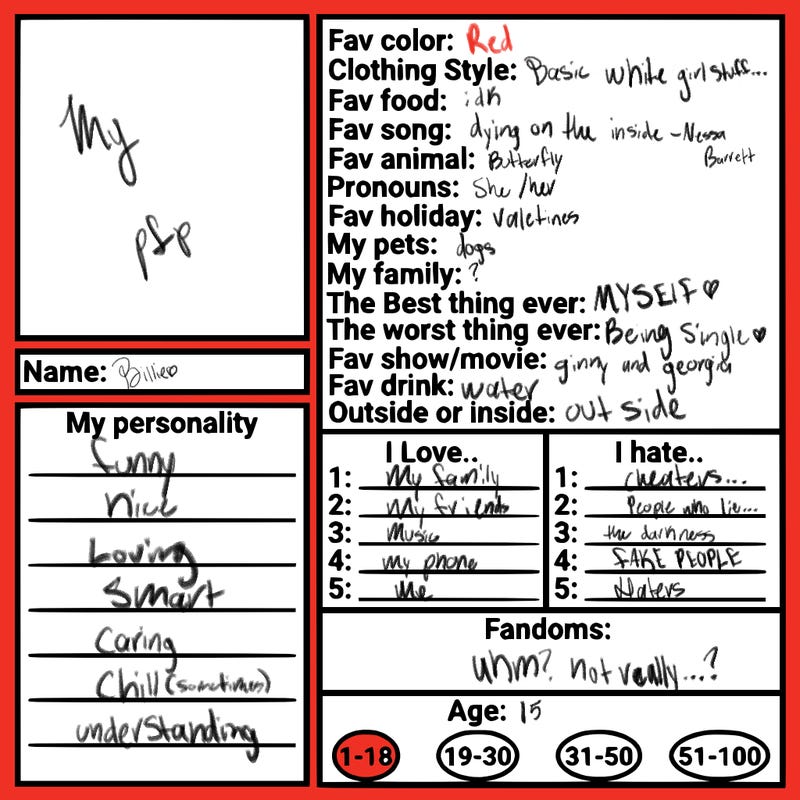 My
pfp
Name: Billie
My personality
funny
nice
Loving
Smart
Caring
Chill (sometimes)
understanding
Fav color: Red
Clothing Style: Basic white girl stuff...
Fav food: idk
Fav song: dying on the inside - Nessa
Barrett
Fav animal: Butterfly
Pronouns: She/her
Fav holiday: Valetines
My pets: dogs
My family: ?
The Best thing ever: MYSElF ♡
The worst thing ever: Being Single ♥
Fav show/movie: ginny and georgia
Fav drink: water
Outside or inside: out side
I Love..
1: My family
2: my friends
3: Music
4: my phone
5: Me
I hate..
1: cheaters...
2: People who lie...
3: the darkness
4: FAKE PEOPLE
5: Haters
Fandoms:
uhm? not really...?
Age: 15
1-18 19-30 31-50 51-100